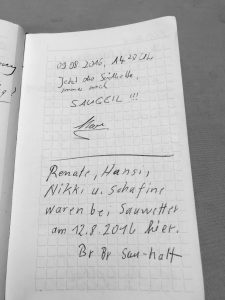 09.08.2016, 14:28 Uhr
Jetzt die Südhütte,
immer noch
SAUGEIL !!!
Renate, Hansi,
Nikki u. Schafine
waren bei Sauwetter
am 12.8.2016 hier.
Br Br Sau-kalt